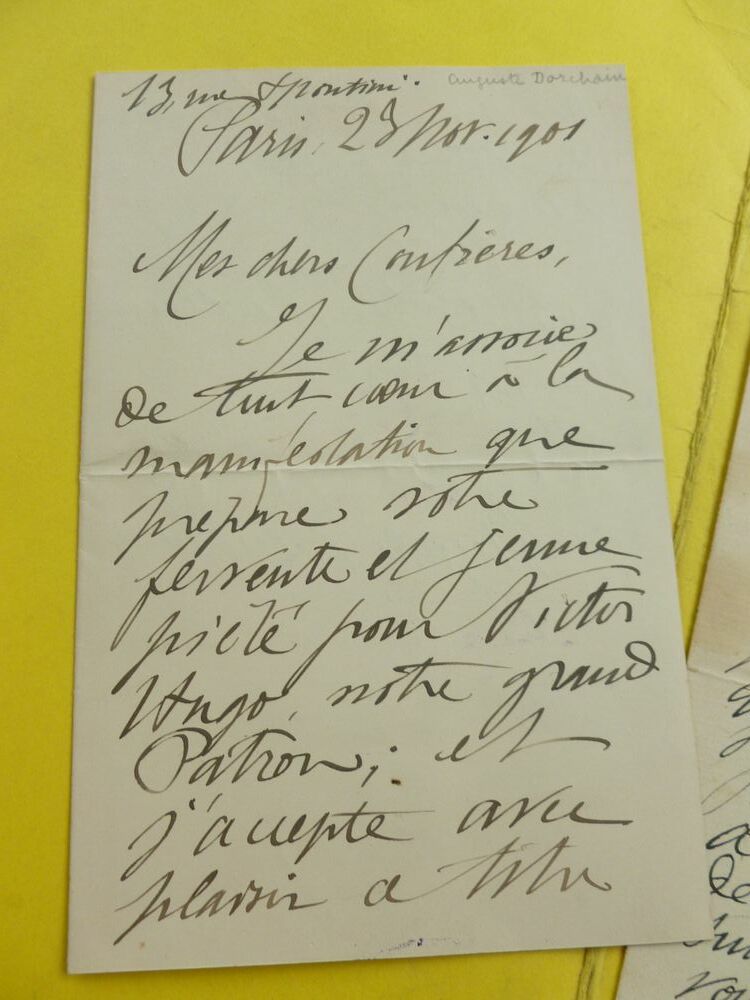 Auguste Dorchain
13, rue Spontini.
Paris, 23 Nov. 1901
Mes chers Confrères,
Je m'associe
de tout cœur à la
manifestation que
prépare votre
fervente et jeune
piété pour Victor
Hugo, notre grand
Patron ; et
j'accepte avec
plaisir ce titre